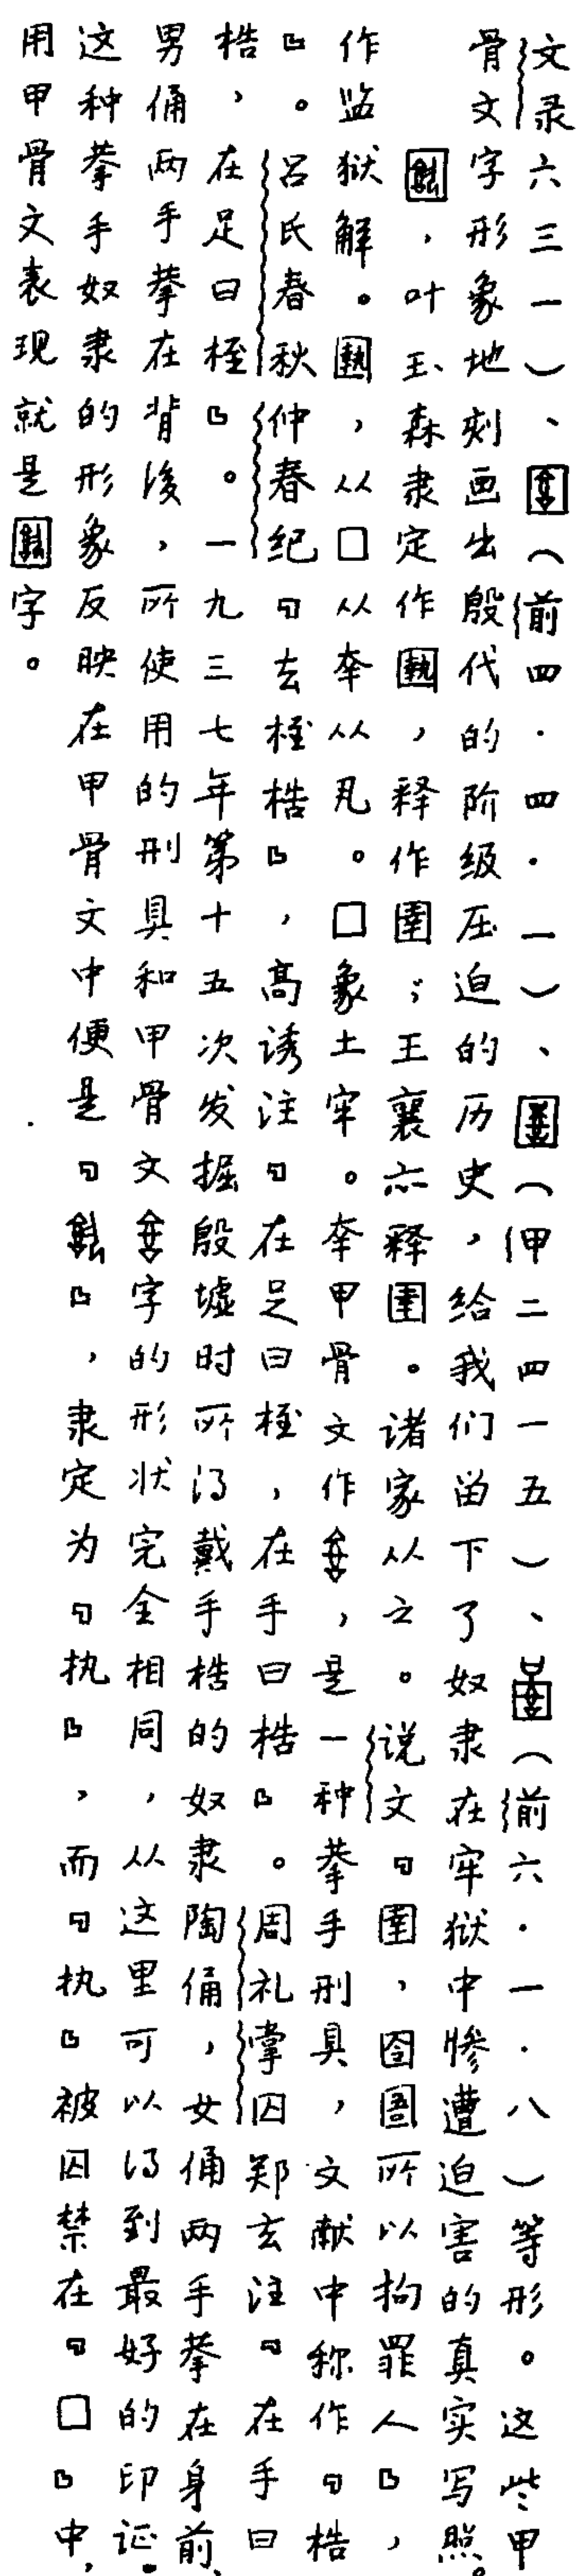 文录六三一）、（前四·四·一）、（甲二四一五）、（前六·一·八）等形。这些甲
骨文字形象地刻画出殷代的阶级压迫的历史，给我们留下了奴隶在牢狱中惨遭迫害的真实写照。
，叶玉森隶定作，释作圉；王襄亦释圉。诸家从之。说文『圉，囹圄所以拘罪人』，
作监狱解。，从口从㚔从丮。口象土牢。㚔甲骨文作，是一种拲手刑具，文献中称作『梏
』。吕氏春秋仲春纪『去桎梏』，高诱注『在足曰桎，在手曰梏』。周礼掌囚郑玄注『在手曰
梏，在足曰桎』。一九三七年第十五次发掘殷墟时所得戴手梏的奴隶陶俑，女俑两手拲在身前，
男俑两手拲在背後，所使用的刑具和甲骨文字的形状完全相同，从这里可以得到最好的印证。
这种拲手奴隶的形象反映在甲骨文中便是『』，隶定为『执』，而『执』被囚禁在『口』中，
用甲骨文表现就是字。